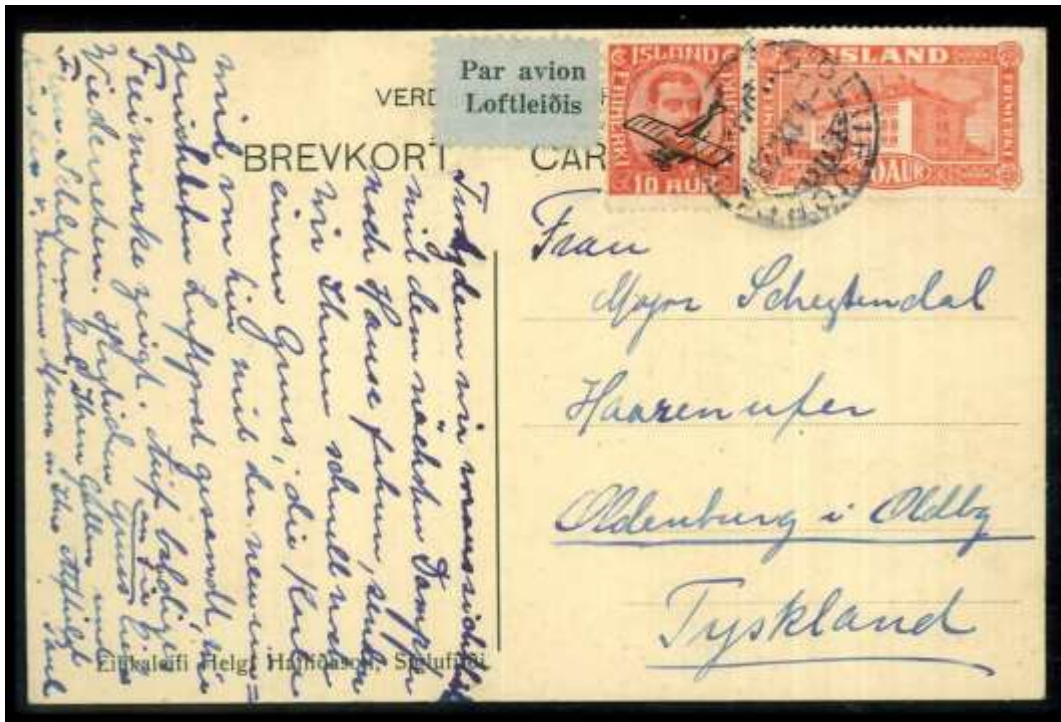 Par avion
Loftleiðis
ISLAND
FRIMERKI
10 AUR
ISLAND
FRIMERKI
AUR
VERÐ
BREVKORT CAR
Frau
Major
Haarenufer
Oldenburg i Oldbg
Tyskland
Trotzdem wir voraussichtlich
mit dem nächsten Dampfer
nach Hause fahren, senden
wir Ihnen schnell noch
einen Gruss, die Karte
wird von hier mit der neu ein=
gerichteten Luftpost gesandt, wie
Freimarke zeigt. Auf baldiges
Wiedersehen. Herzlichen Gruss
an
Ihnen Allen und
v. meinem Mann
Einkaleifi Helgi Hafliðason, Siglufirði